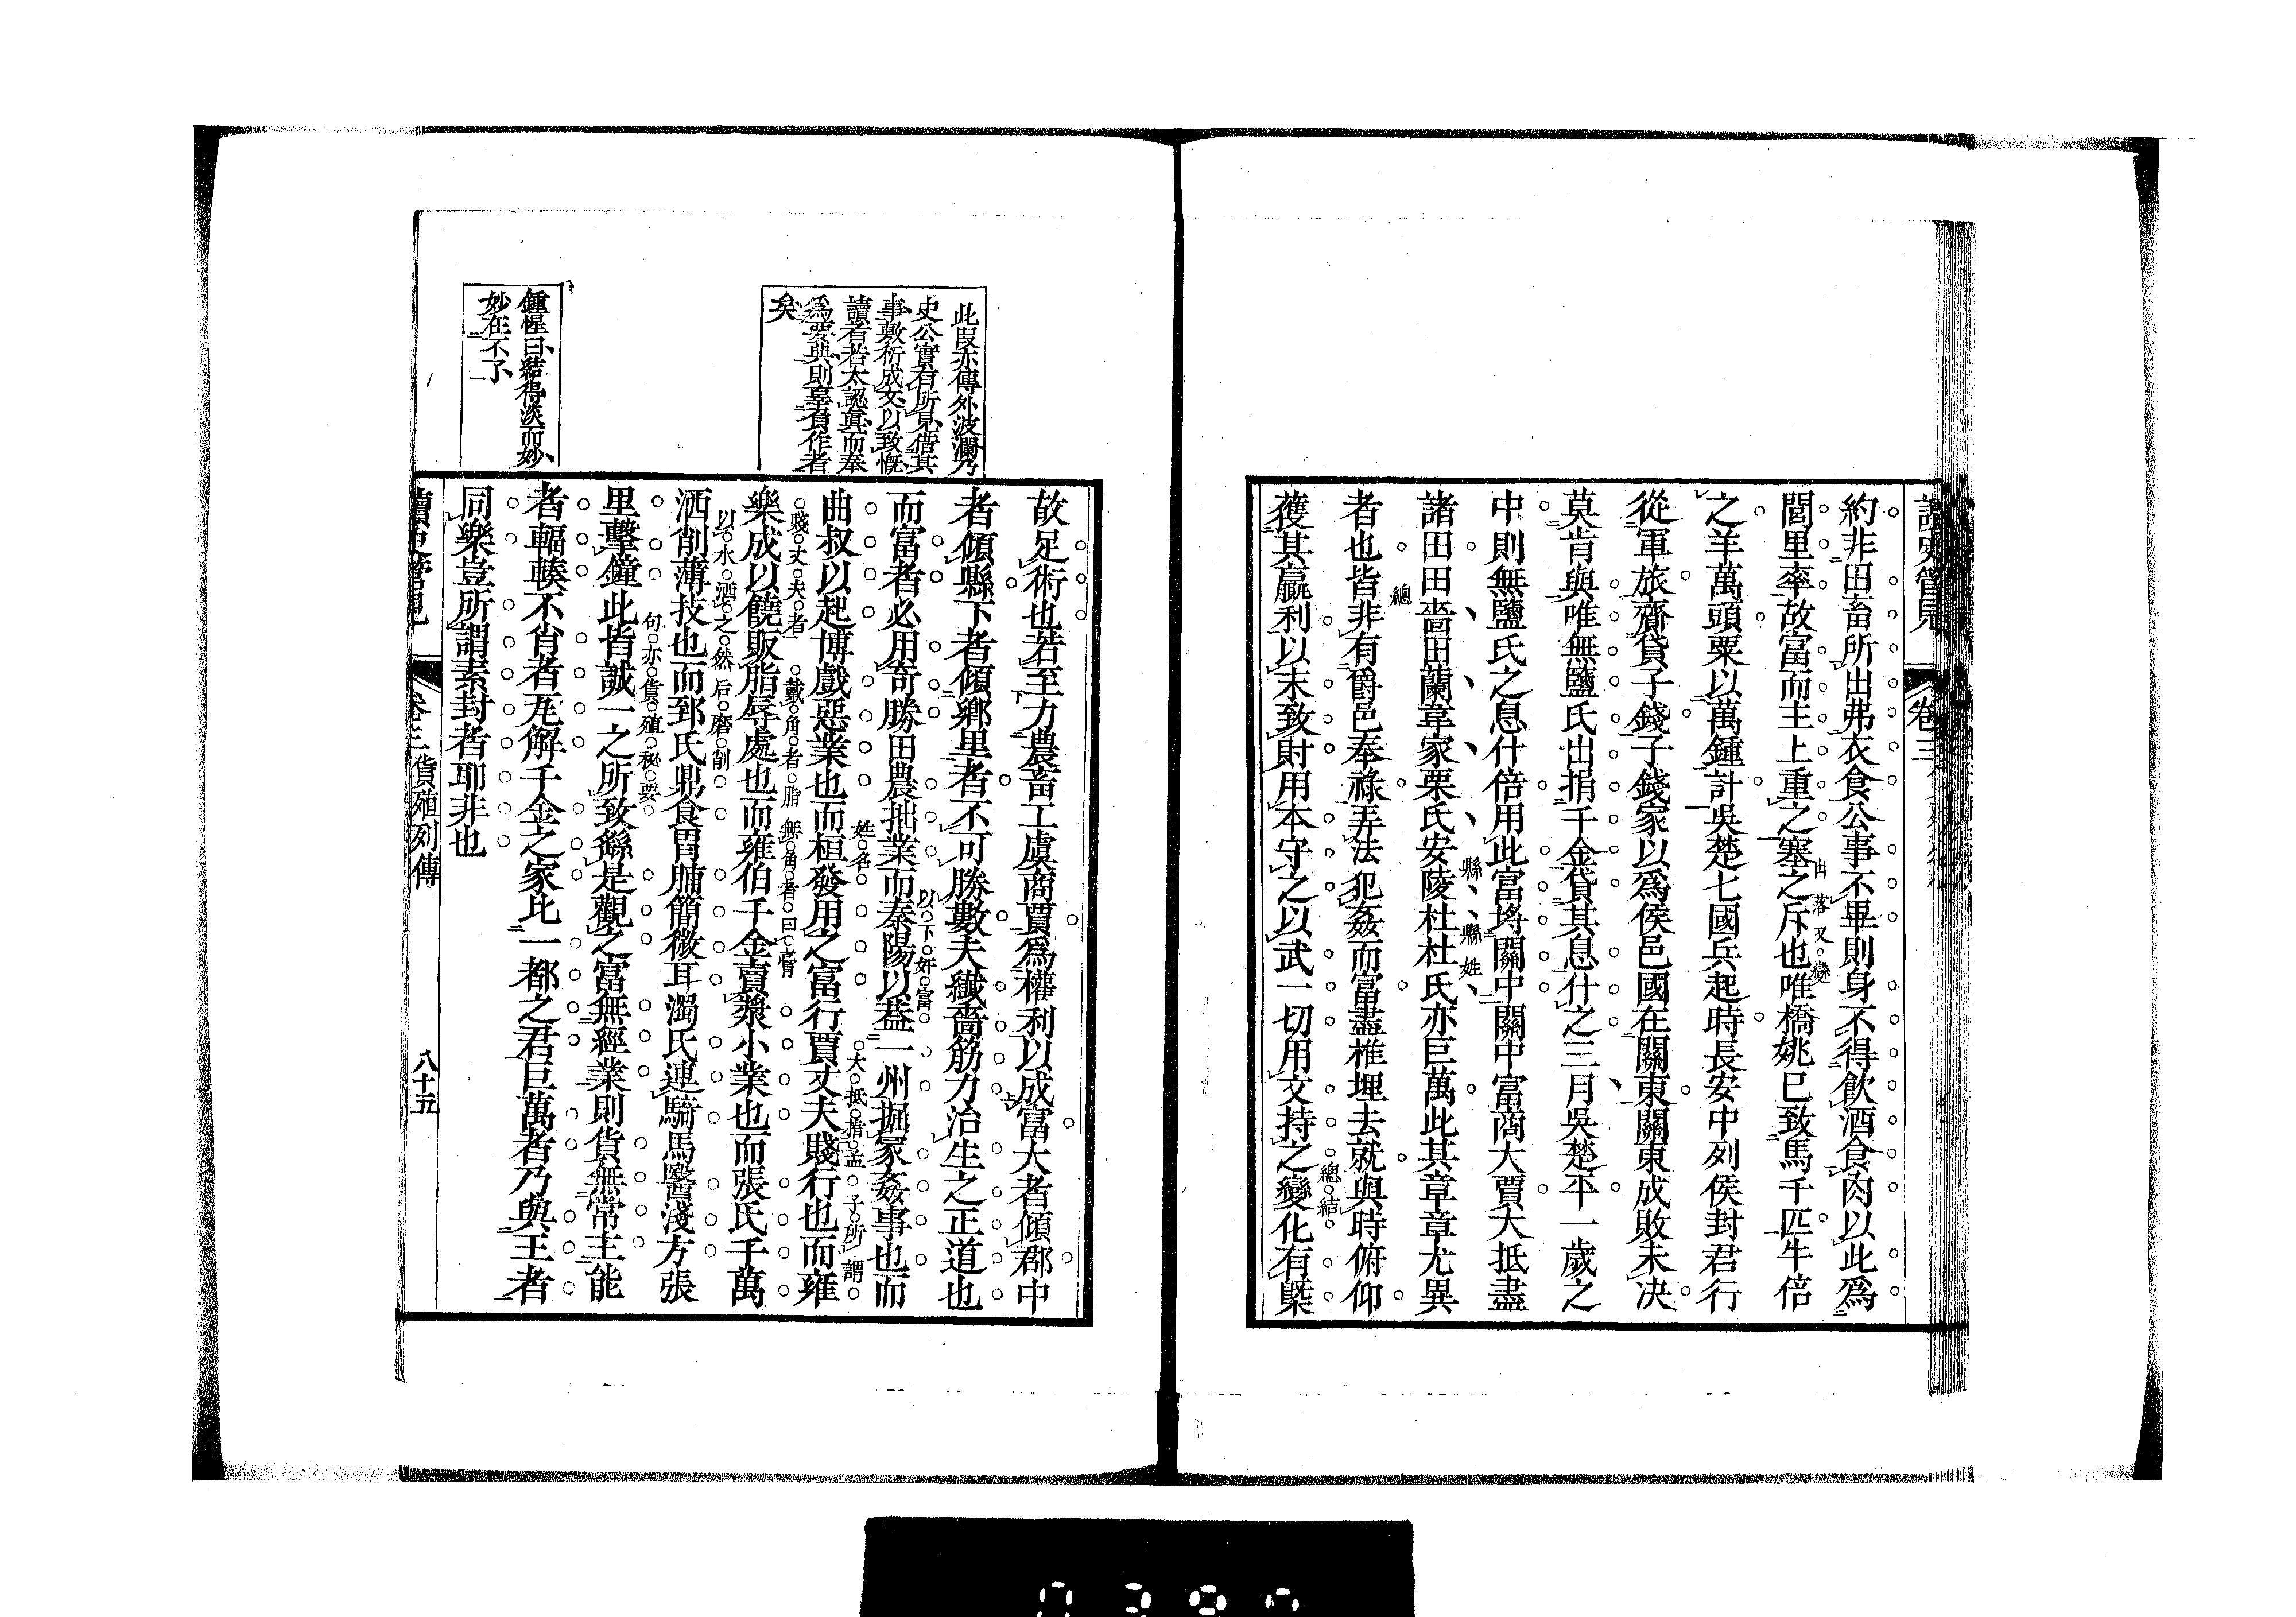 讀史管見
卷三
約非田畜所出弗衣食公事不畢則身不得飲酒食肉以此爲
閭里率故富而主上重之塞之斥也唯橋姚已致馬千匹牛倍
出落又變
之羊萬頭粟以萬鍾計吳楚七國兵起時長安中列侯封君行
從軍旅齎貸子錢子錢家以爲侯邑國在關東關東成敗未决
莫肯與唯無鹽氏出捐千金貸其息什之三月吳楚平一歲之
中則無鹽氏之息什倍用此富埓關中關中富商大賈大抵盡
諸田田嗇田蘭韋家栗氏安陵杜杜氏亦巨萬此其章章尤異
縣縣姓
者也皆非有爵邑奉祿弄法犯姦而富盡椎埋去就與時俯仰
總
獲其贏利以末致財用本守之以武一切用文持之變化有槩
總結
故足術也若至力農畜工虞商賈爲權利以成富大者傾郡中
者傾縣下者傾鄉里者不可勝數夫纖嗇筋力治生之正道也
下
而富者必用奇勝田農拙業而秦陽以葢一州掘冢姦事也而
以下奸富
曲叔以起博戲惡業也而桓發用之富行賈丈夫賤行也而雍
姓名
大抵指孟子所謂
賤丈夫者
樂成以饒販脂辱處也而雍伯千金賣漿小業也而張氏千萬
戴角者脂無角者曰膏
洒削薄技也而郅氏鼎食胃脯簡微耳濁氏連騎馬醫淺方張
以水洒之然后磨削
里擊鐘此皆誠一之所致繇是觀之富無經業則貨無常主能
句亦貨殖秘要
者輻輳不肖者瓦解千金之家比一都之君巨萬者乃與王者
同樂豈所謂素封者耶非也
讀史管見
卷三
貨殖列傳
八十五
此叚亦傳外波瀾乃
史公實有所見借其
事敷衍成文以致慨
讀者若太認真而奉
爲要典則辜負作者
矣
鍾惺曰結得淡而妙
妙在不了